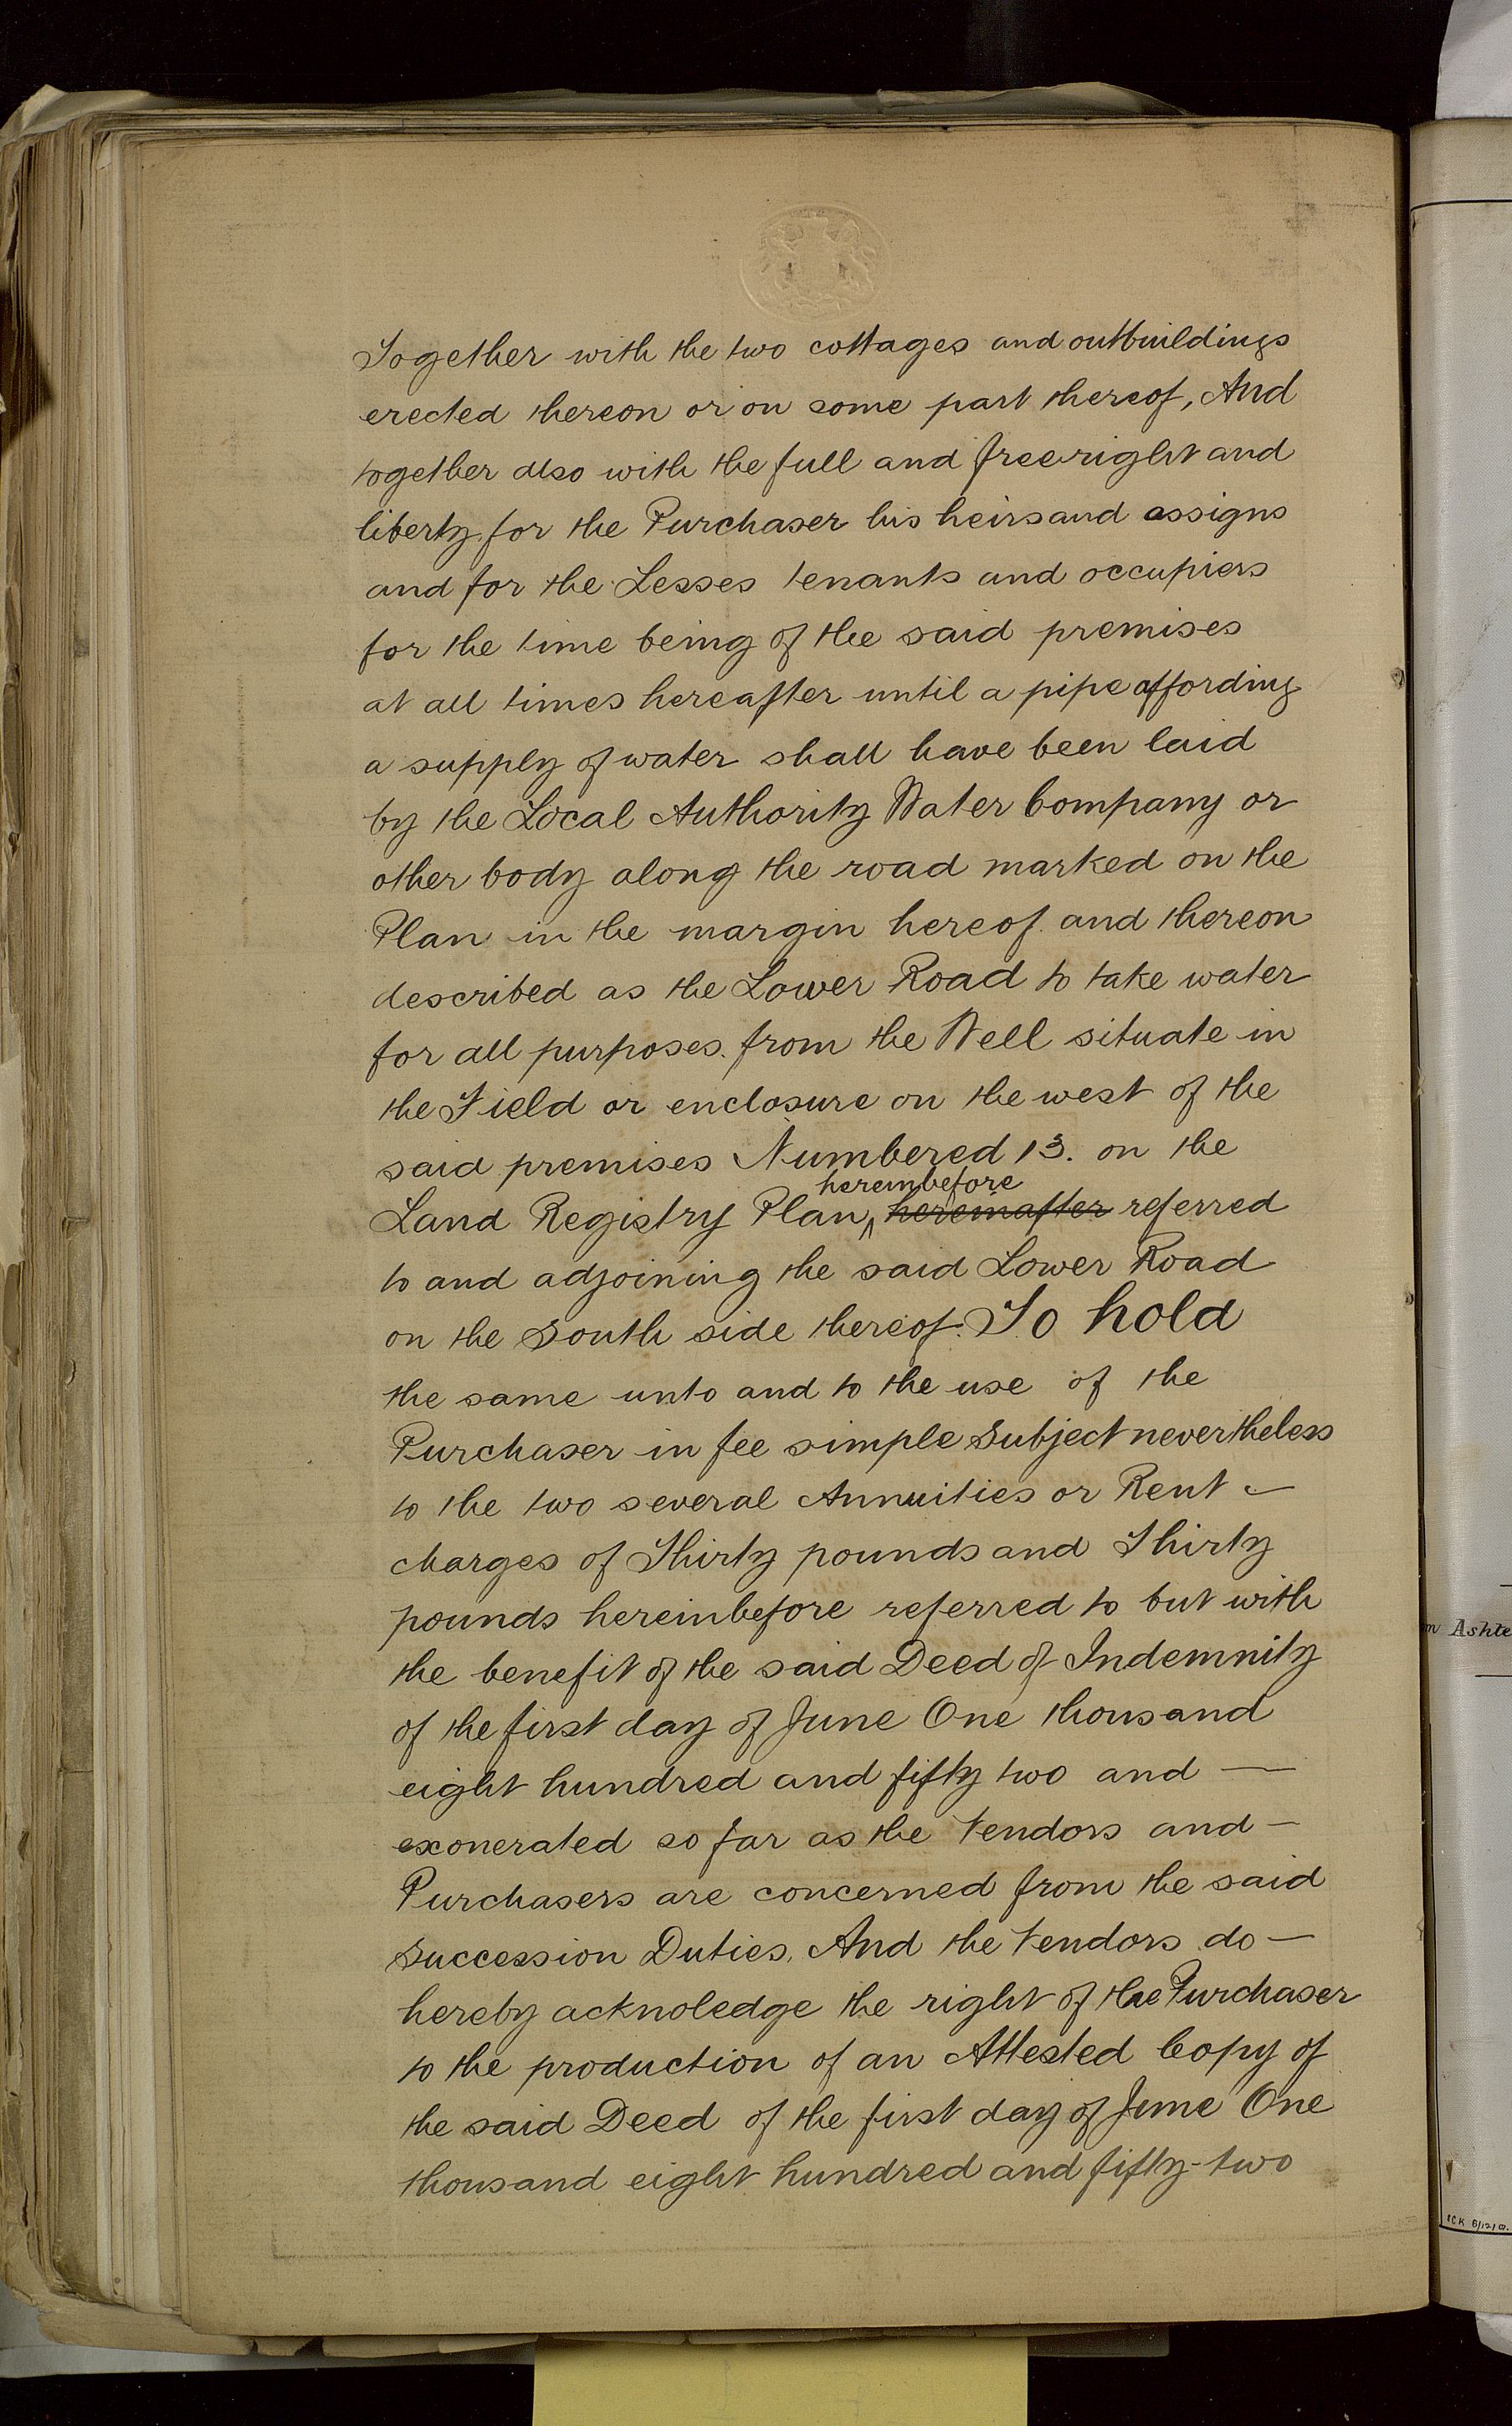 Together with the two cottages and outbuildings
erected thereon or on some part thereof, And
together also with the full and free right and
liberty for the Purchaser his heirs and assigns
and for the Lesses tenants and occupiers
for the time being of the said premises
at all times hereafter until a pipe affording
a supply of water shall have been laid
by the Local Authority Water Company or
other body along the road marked on the
Plan in the margin hereof and thereon
described as the Lower Road to take water
for all purposes from the Well situate in
the Field or enclosure on the west of the
said premises Numbered 13. on the
hereinbefore
Land Registry Plan, hereinafter referred
to and adjoining the said Lower Road
on the South side thereof. To hold
the same unto and to the use of the
Purchaser in fee simple Subject nevertheless
to the two several Annuities or Rent -
charges of Thirty pounds and Thirty
pounds hereinbefore referred to but with
the benefit of the said Deed of Indemnity
of the first day of June One thousand
eight hundred and fifty two and —
exonerated so far as the Vendors and —
Purchasers are concerned from the said
Succession Duties, And the Vendors do —
hereby acknoledge the right of the Purchaser
to the production of an Attested Copy of
the said Deed of the first day of June One
thousand eight hundred and fifty-two